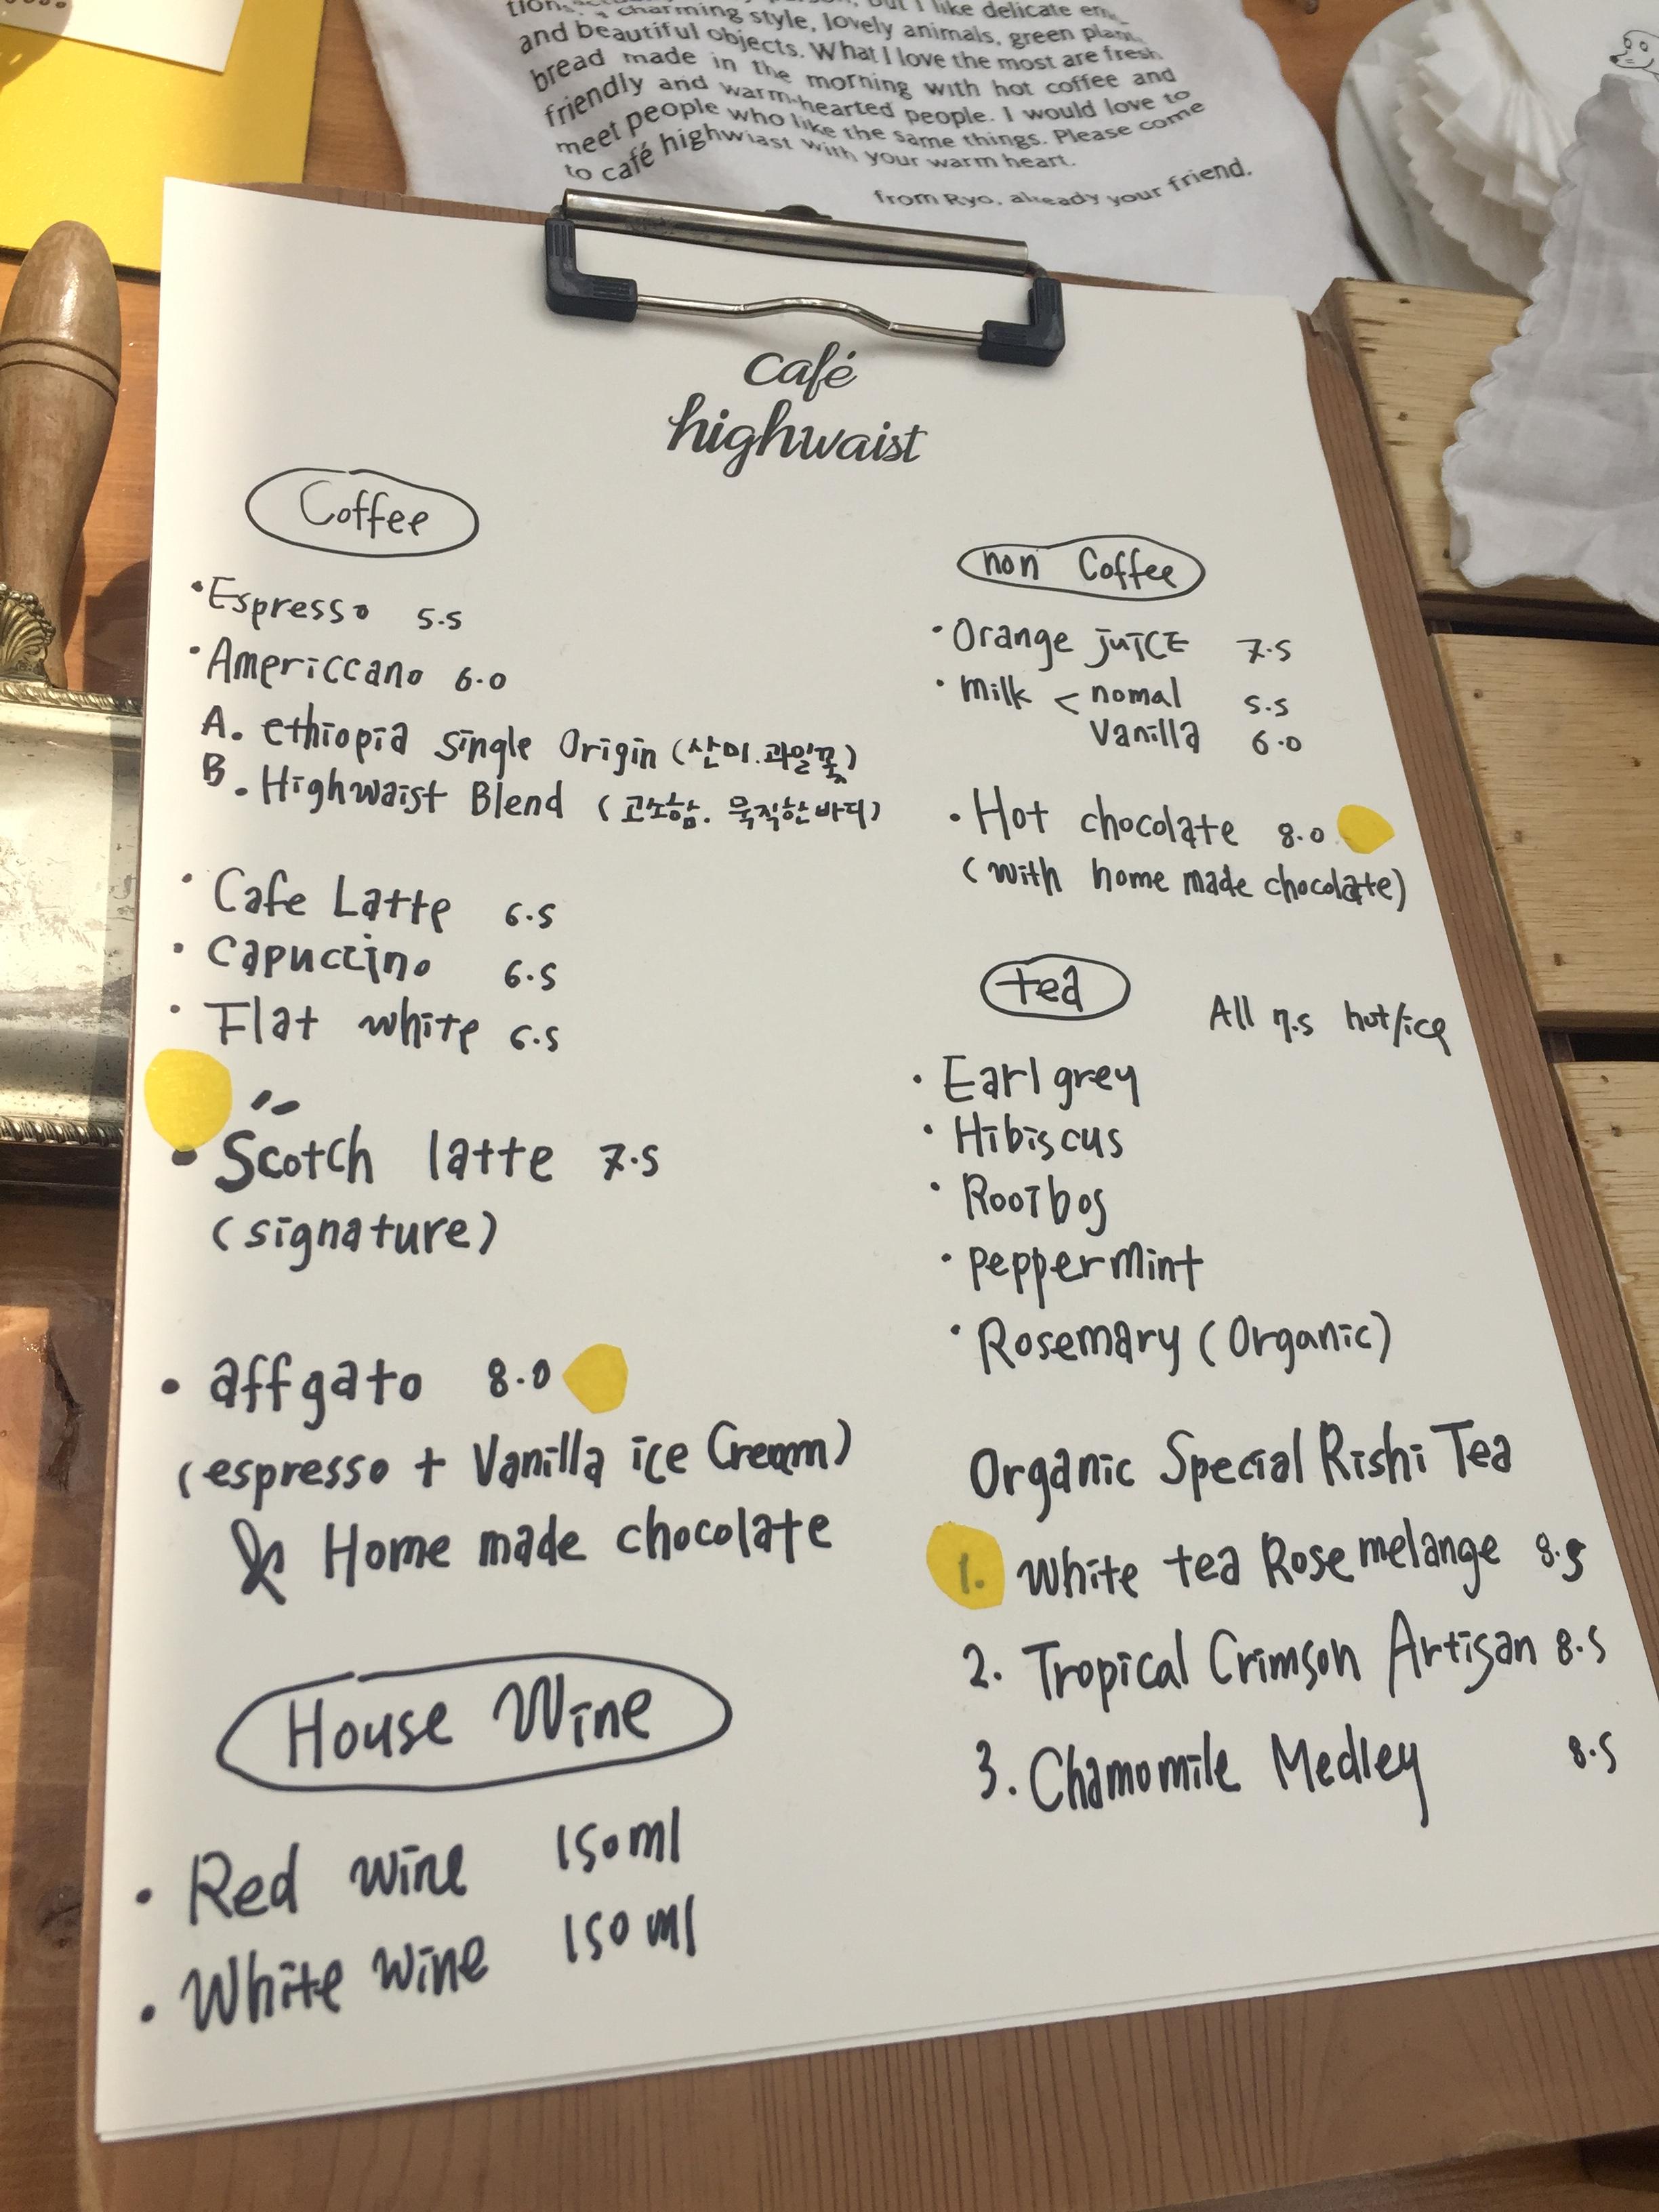 charming style, lovely animals, green
and beautiful objects. What I love the most are fresh
bread made in the morning with hot coffee and
friendly and warm-hearted people. I would love to
meet people who like the same things. Please come
to café highwaist with your warm heart.
from Ryo, already your friend.
café
highwaist
Coffee
• Espresso 5.5
• Americcano 6.0
A. ethiopia single Origin (산미.과일꽃)
B. Highwaist Blend (고소함. 묵직한바디)
• Cafe Latte 6.5
• Capuccino 6.5
• Flat white 6.5
• Scotch latte 7.5
(signature)
• affgato 8.0
(espresso + Vanilla ice Cream)
& Home made chocolate
House Wine
• Red wine 150ml
• White wine 150ml
non Coffee
• Orange juice 7.5
• Milk < nomal 5.5
Vanilla 6.0
• Hot chocolate 8.0
(with home made chocolate)
tea
All 7.5 hot/ice
• Earl grey
• Hibiscus
• Rooibos
• peppermint
• Rosemary (Organic)
Organic Special Rishi Tea
1. White tea Rose melange 8.5
2. Tropical Crimson Artisan 8.5
3. Chamomile Medley 8.5